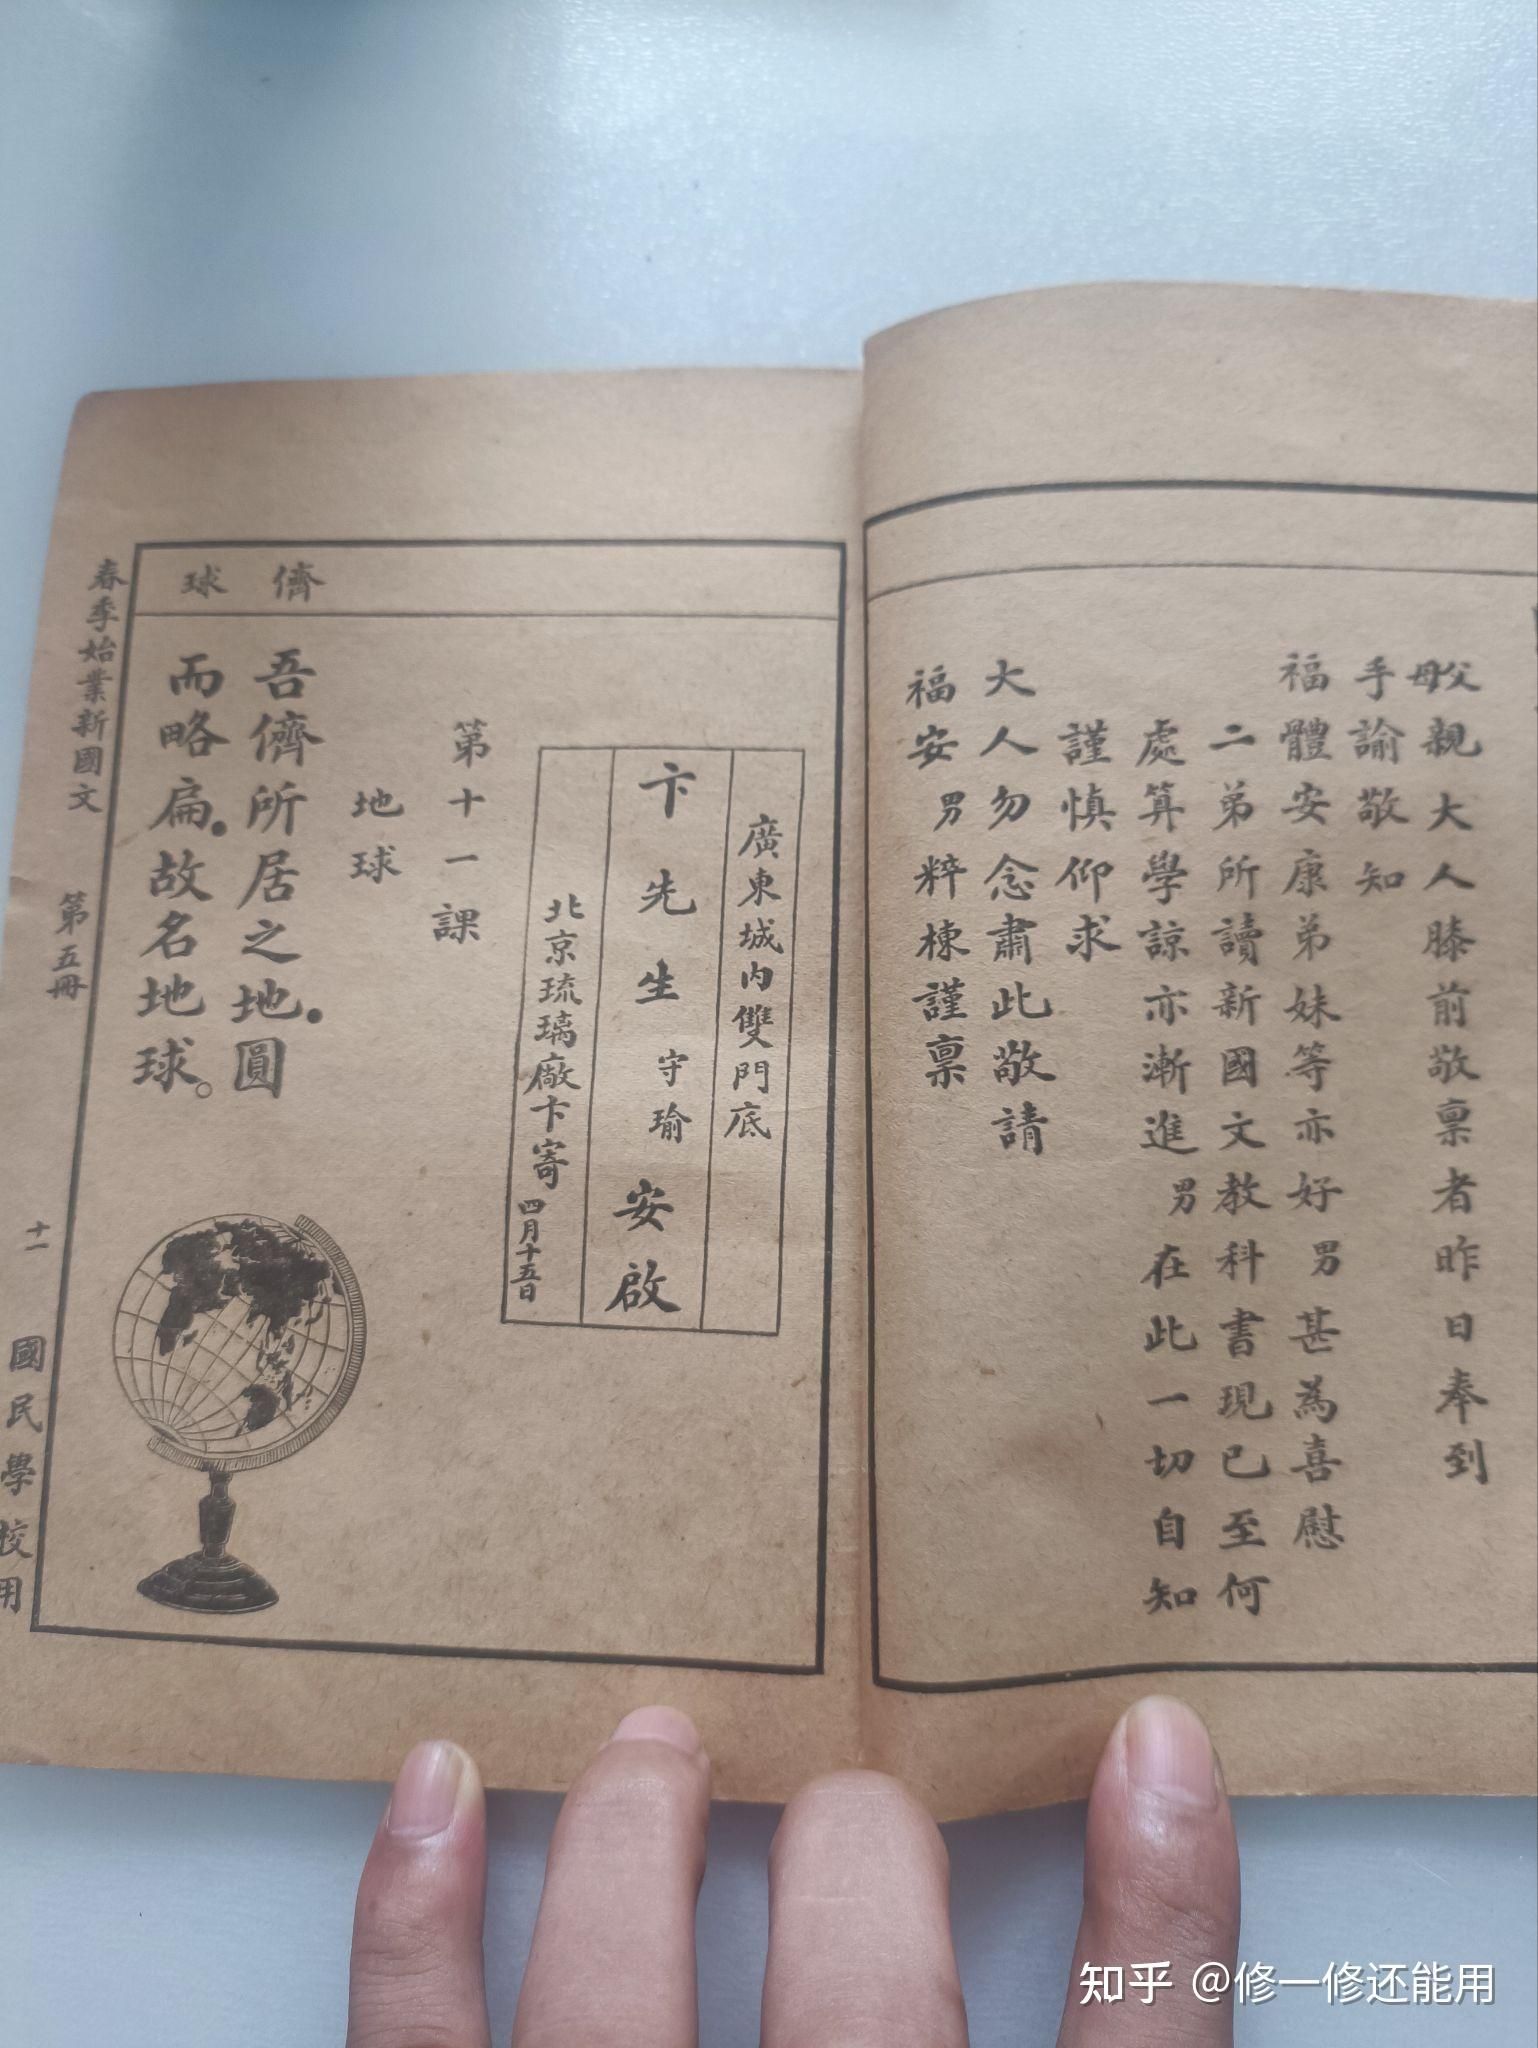 父母親大人膝前敬稟者昨日奉到
手諭敬知
福體安康弟妹等亦好男甚為喜慰
二弟所讀新國文教科書現已至何
處算學諒亦漸進男在此一切自知
謹慎仰求
大人勿念肅此敬請
福安男粹棟謹稟
儕
球
廣東城內雙門底
卞先生守瑜安啟
北京琉璃廠卞寄四月十五日
第十一課
地球
吾儕所居之地.圓
而略扁.故名地球。
春季始業新國文 第五冊 十一 國民學校用
知乎 @修一修还能用